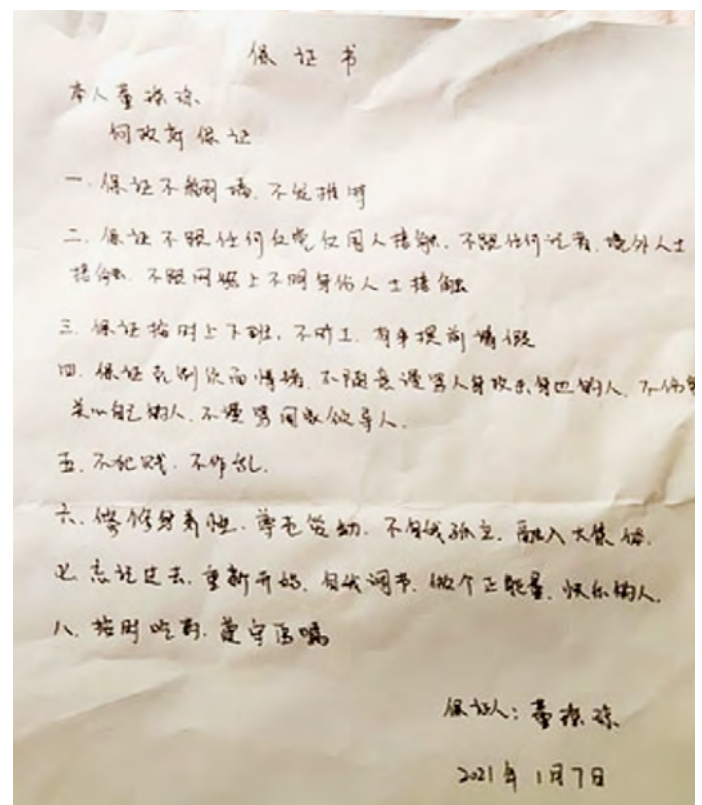 保证书
本人董瑶琼
向政府保证
一.保证不翻墙.不发推特
二.保证不跟任何外国人接触.不跟任何记者.境外人士
接触.不跟网络上不明身份人士接触
三.保证按时上下班,不旷工.有事提前请假
四.保证克制负面情绪.不随意谩骂人身攻击身边的人.不伤害
关心自己的人.不谩骂国家领导人.
五.不犯贱.不作乱.
六.修身养性.尊老爱幼.不自我孤立.融入大集体.
七.忘记过去.重新开始.自我调节.做个正能量.快乐的人.
八.按时吃药.遵守医嘱
保证人:董瑶琼
2021年1月7日